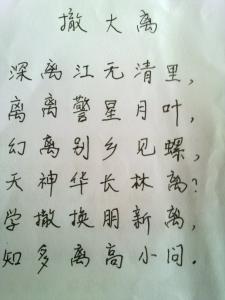 撤大离
深离江无清里,
离离警星月叶,
幻离别乡见螺,
天神华长林离?
学撤换朋新离,
知多离高小问.